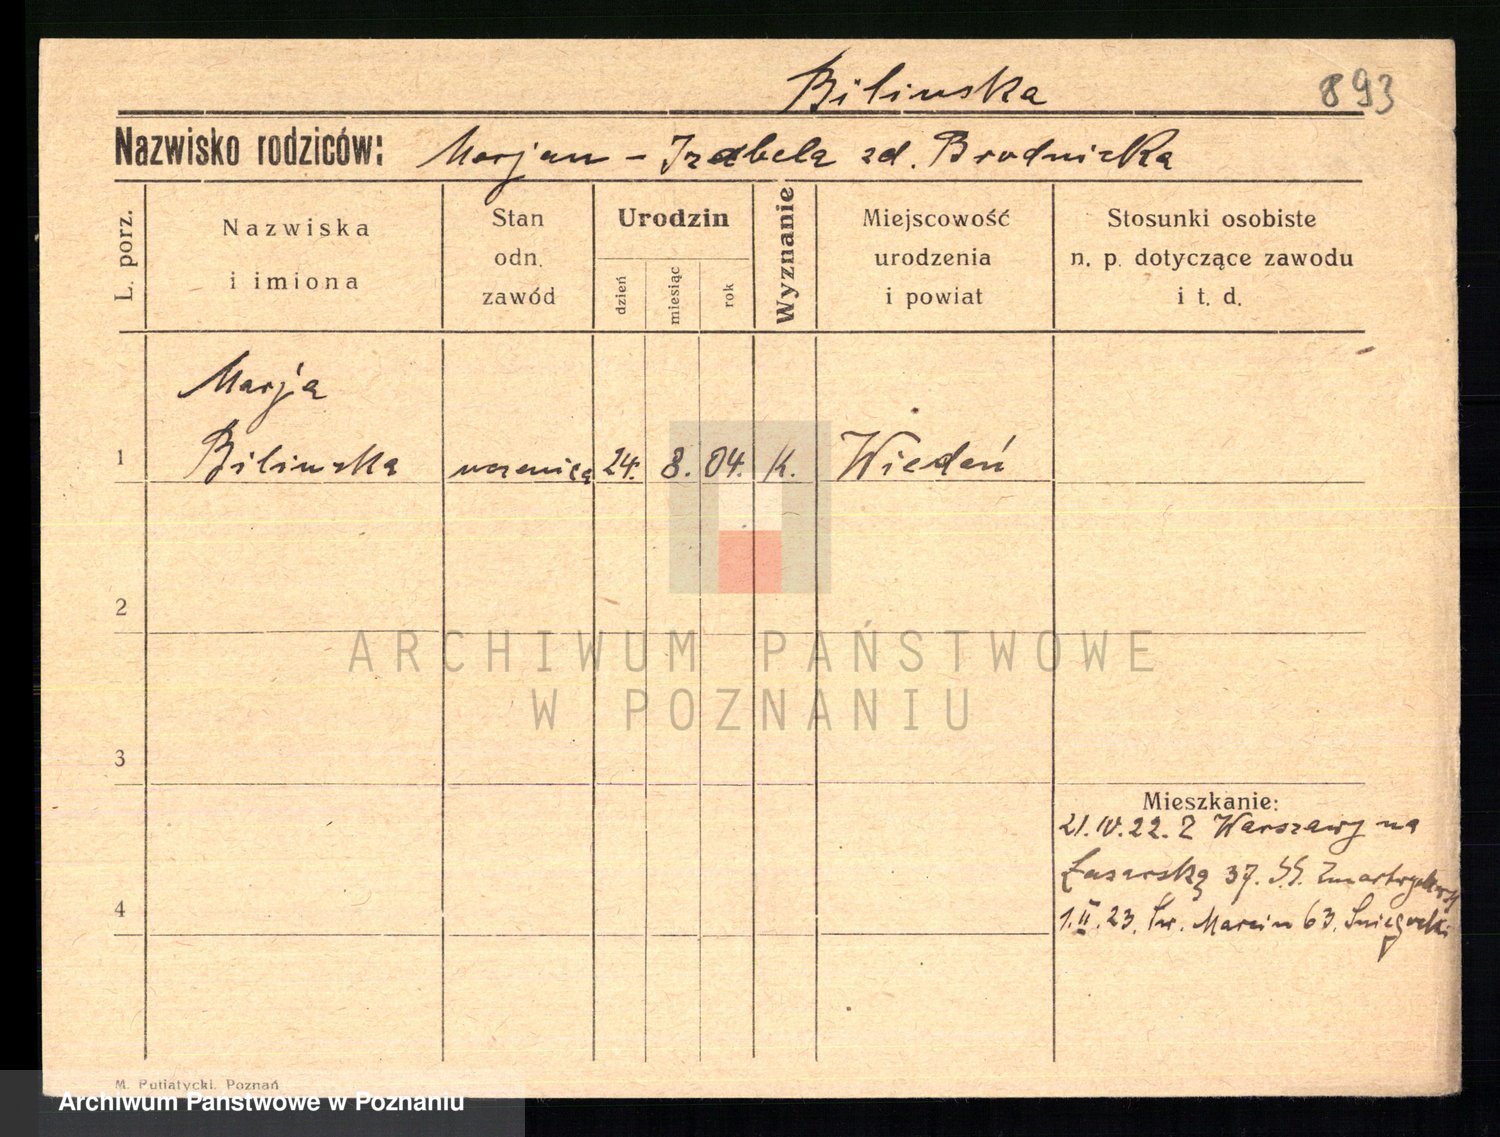 Bilinska
893
Nazwisko rodziców: Marjan - Izabela zd. Brodnicka
L. porz.
Nazwiska
i imiona
Stan
odn.
zawód
Urodzin
dzień
miesiąc
rok
Wyznanie
Miejscowość
urodzenia
i powiat
Stosunki osobiste
n. p. dotyczące zawodu
i t. d.
Marja
1 Bilinska uczenica 24. 8. 04. K. Wiedeń
2
3
Mieszkanie:
21.IV.22. Z Warszawy na
Łazarską 37. S.S.
4
1.II.23. Św. Marcin 63.
M. Putiatycki, Poznań
ARCHIWUM PAŃSTWOWE
W POZNANIU
Archiwum Państwowe w Poznaniu